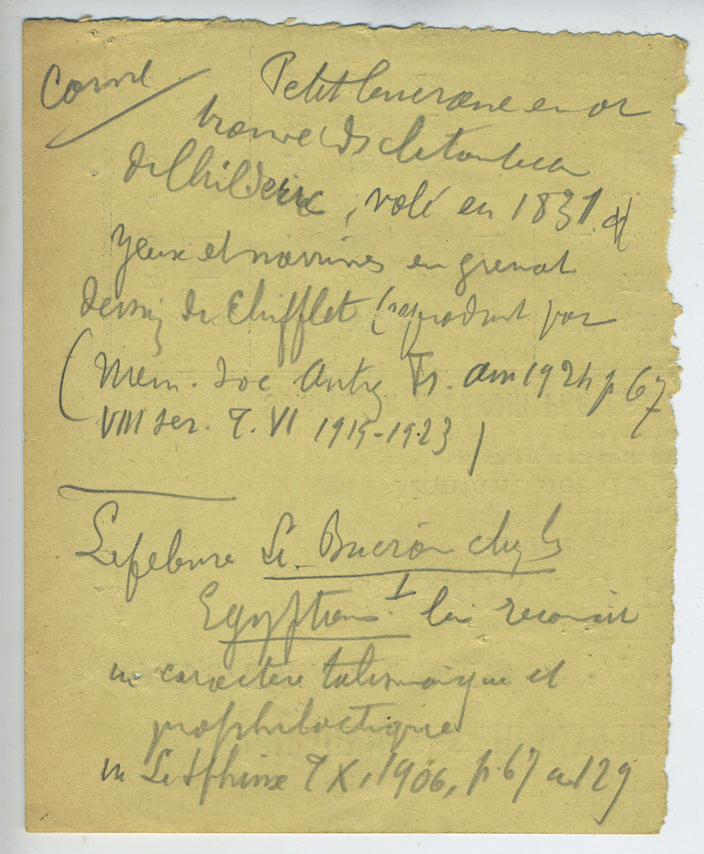 Corne
Petit bucrane en or
trouvé ds le tombeau
de Childéric, volé en 1831. et
yeux et narines en grenat
dessin de Chifflet (reproduit par
(Mem. Soc Antiq Fr. ann 1924 p 67
VIII ser. T. VI 1919-1923)
Lefebure Le Bucrâne chez les
Egyptiens lui reconnait
un caractère talismanique et
prophilactique
in Le Sphinx T X, 1906, p. 67 a 129